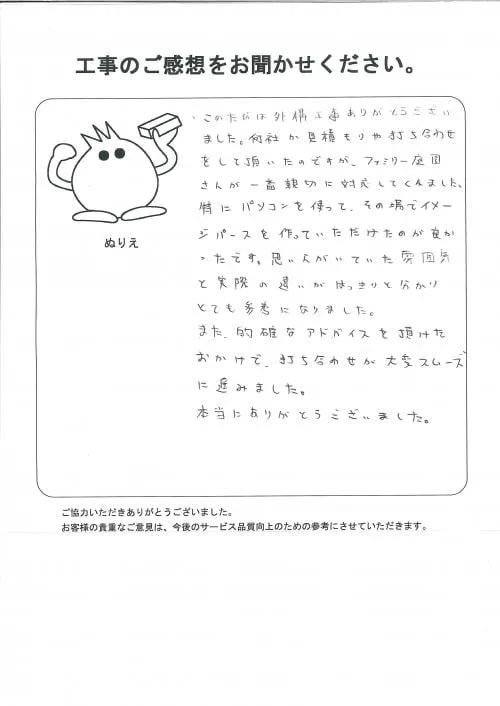 工事のご感想をお聞かせください。
このたびは外構工事ありがとうござい
ました。何社か見積もりや打ち合わせ
をして頂いたのですが、ファミリー庭園
さんが一番親切に対応してくれました。
特にパソコンを使って、その場でイメー
ジパースを作っていただけたのが良か
ったです。思いえがいていた雰囲気
と実際の違いがはっきりと分かり
とても参考になりました。
また、的確なアドバイスを頂けた
おかげで、打ち合わせが大変スムーズ
に進みました。
本当にありがとうございました。
ぬりえ
ご協力いただきありがとうございました。
お客様の貴重なご意見は、今後のサービス品質向上のための参考にさせていただきます。